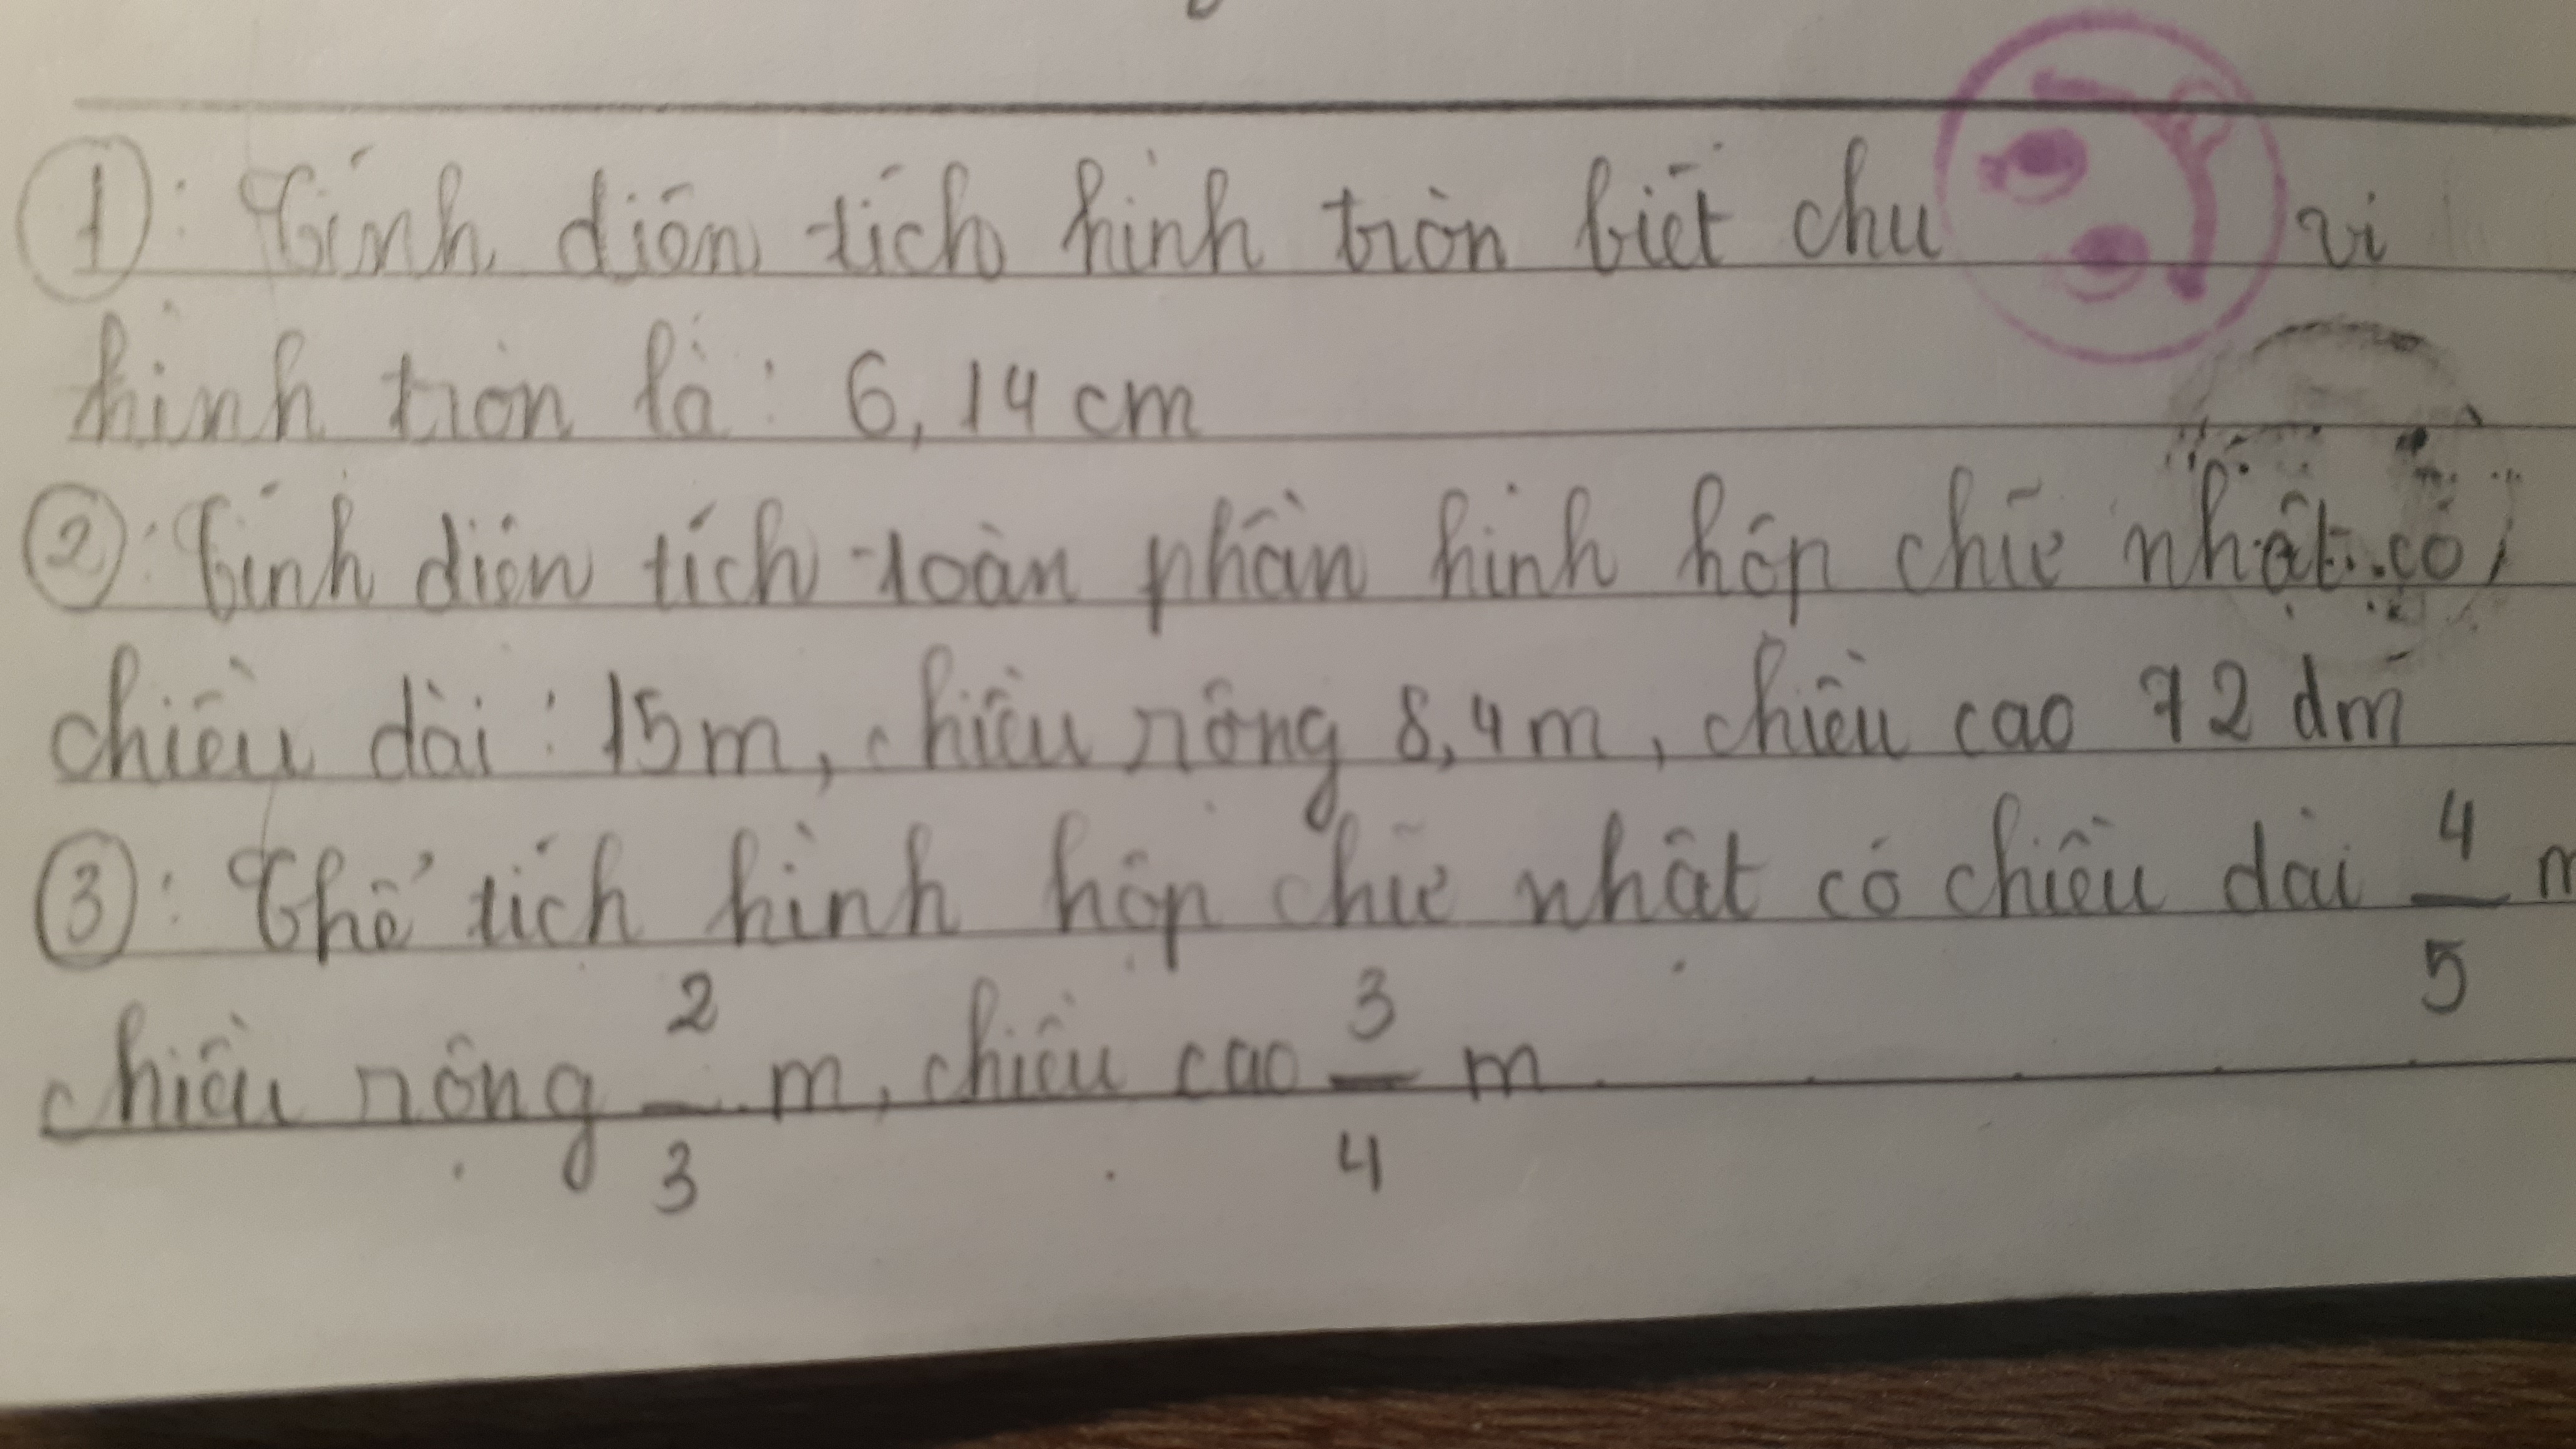 ①: Tính diện tích hình tròn biết chu vi
hình tròn là: 6,14 cm
②: Tính diện tích toàn phần hình hộp chữ nhật có
chiều dài: 15m, chiều rộng 8,4m, chiều cao 72 dm
③: Thể tích hình hộp chữ nhật có chiều dài 4/5 m
chiều rộng 2/3 m, chiều cao 3/4 m